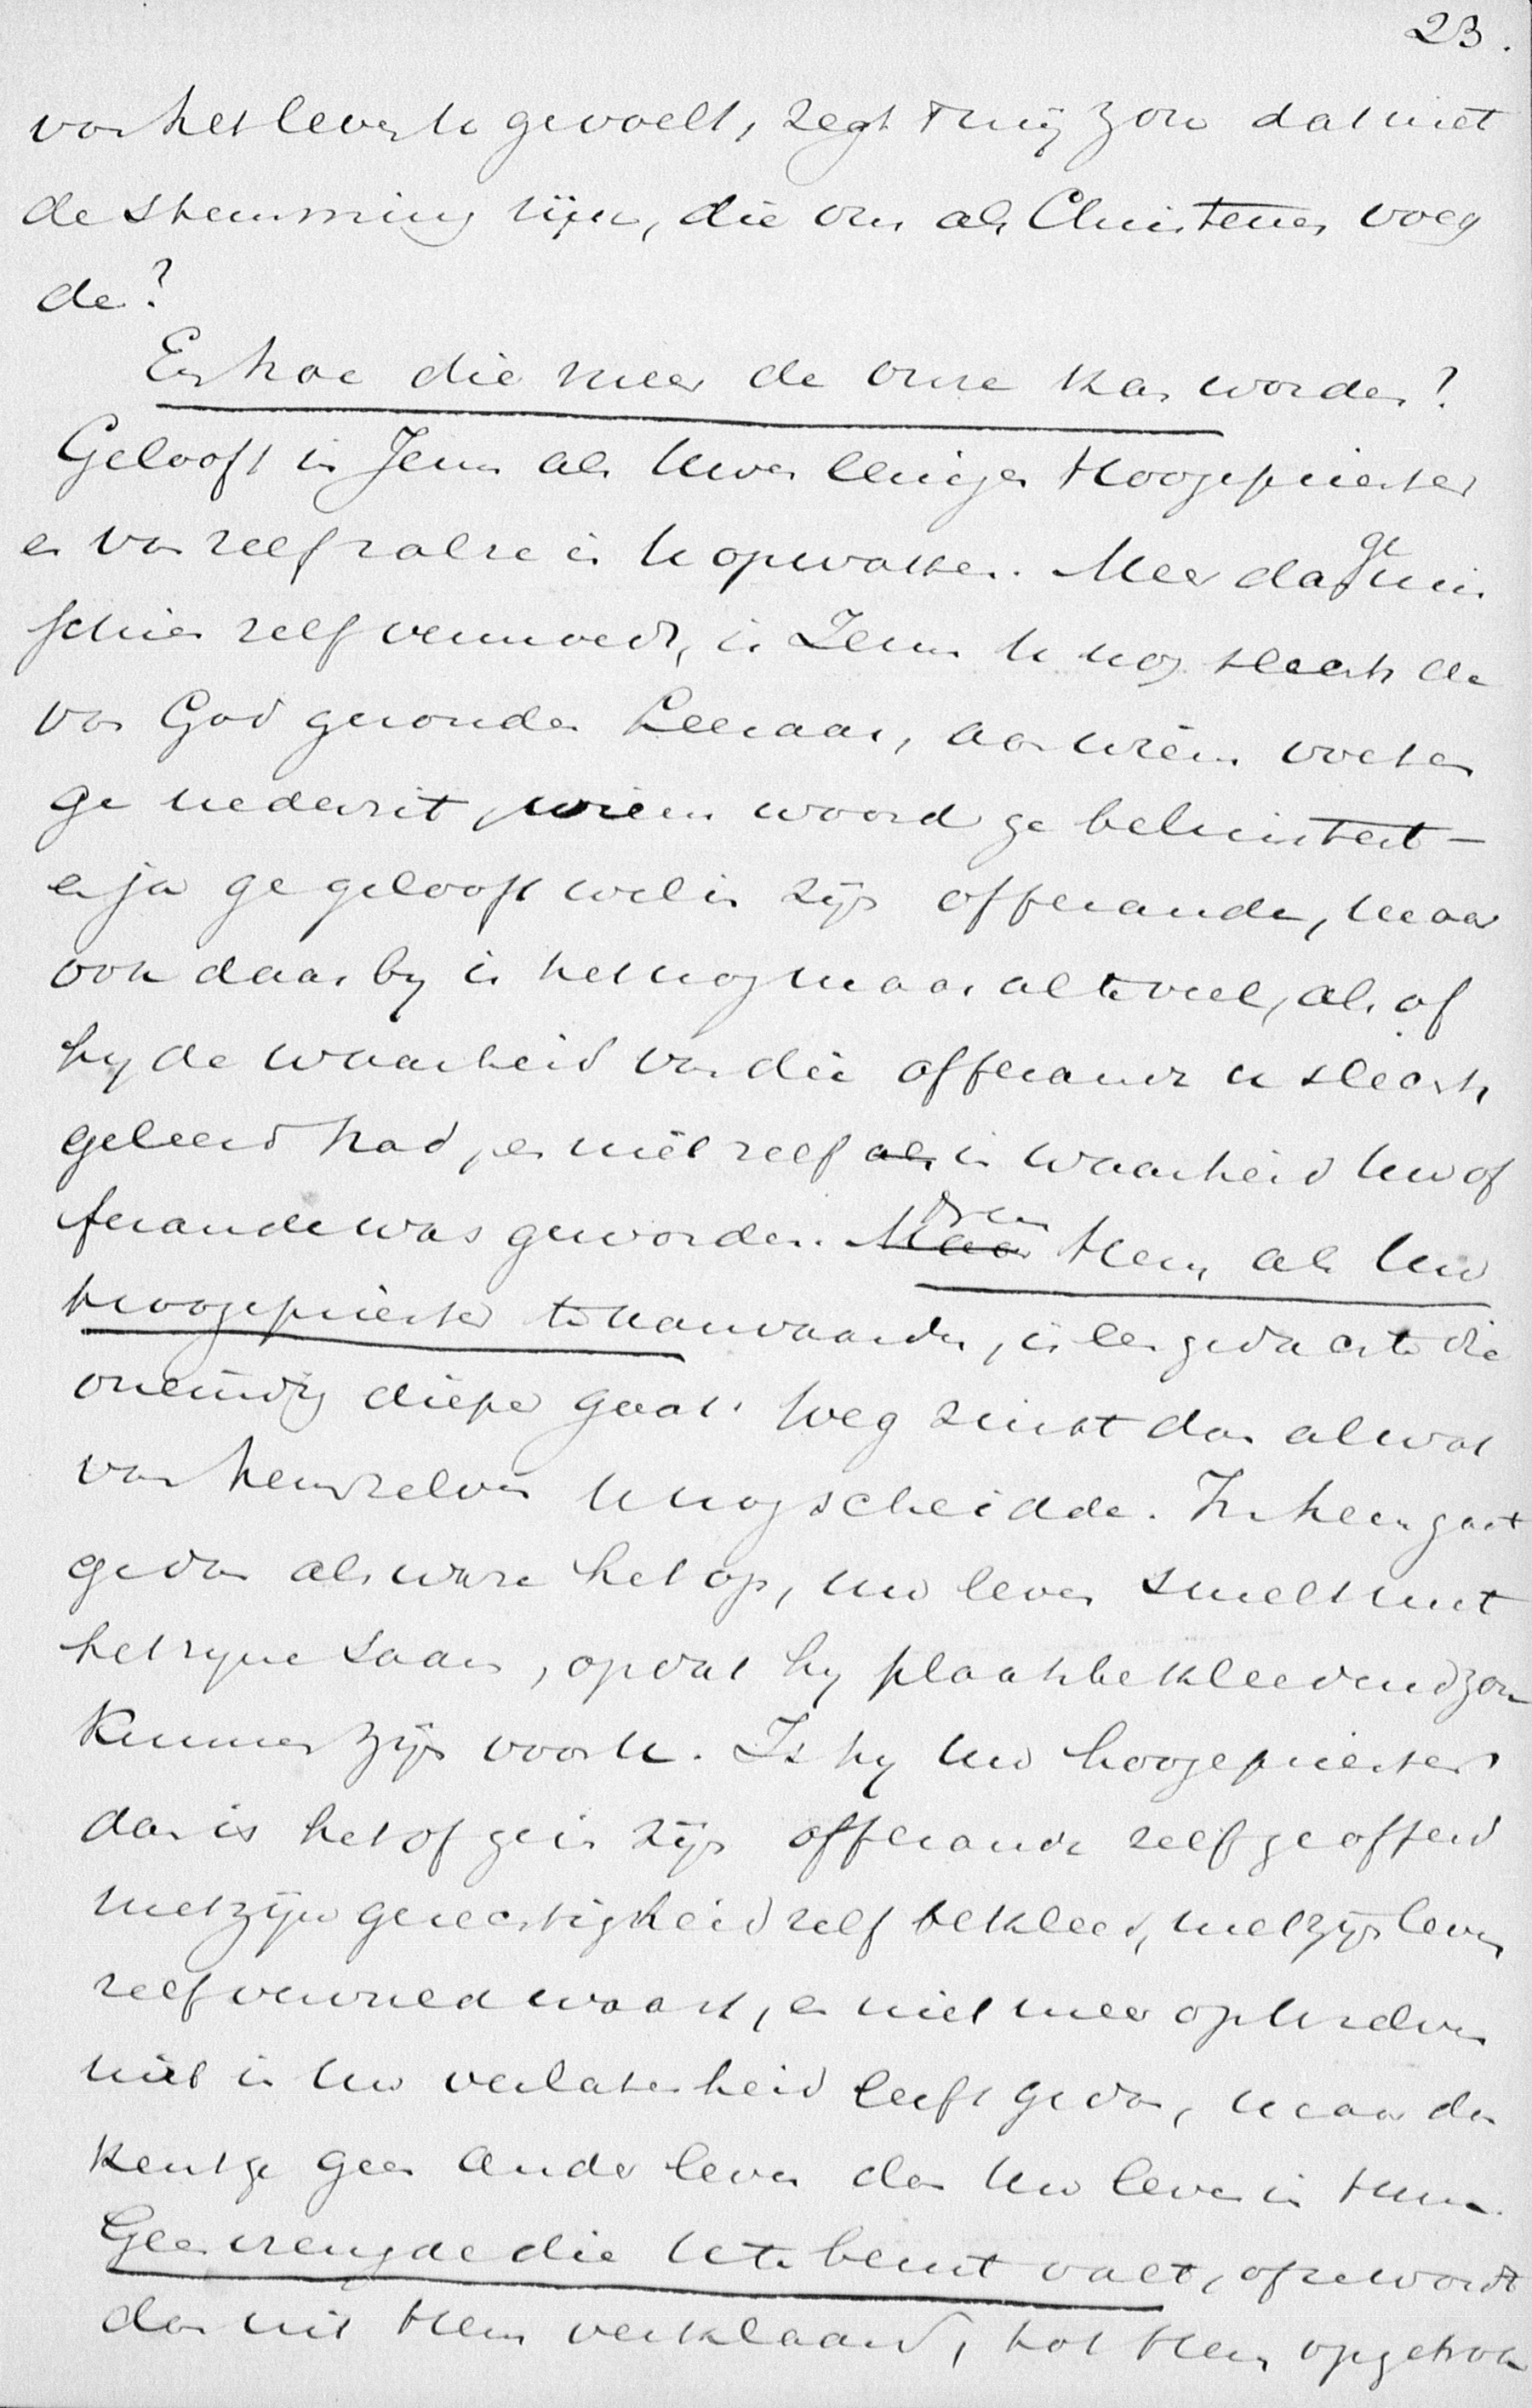 23.
van het leven te gevoelt, zegt mij zou dat niet
de stemming zijn, die ons als Christenen voeg
de?
En hoe die meer de onze kan worden?
Gelooft in Jezus als Uwen eenigen Hoogepriester
en van zelf zal ze in U opwaken. Meer dan ge mis
schien zelf vermoedt, is Jezus U nog slechts de
van God gezonden Leeraar, aan wiens voeten
ge nederzit, wiens woord ge beluistert —
en ja ge gelooft wel in zijn offerande, maar
ook daarby is het nog maar al te veel, als of
hy de waarheid van die offerande u slechts
geleerd had, en niet zelf als in waarheid Uw of
ferande was geworden. Maar Hem als Uw
hoogepriester te aanvaarden, is een gedachte die
oneindig dieper gaat. Weg zinkt dan al wat
van hemzelven U nog scheidde. In hem gaat
ge dan als ware het op, uw leven smelt met
het zyne saam, opdat hy plaatsbekleedend zou
kunnen zijn voor U. Is hy Uw hoogepriester
dan is het of ge in zijn offerande zelf geofferd
met zijn gerechtigheid zelf bekleed, met zijn leven
zelf vervuld waart, en niet meer op Uzelven
niet in Uw verlatenheid leeft ge dan, maar dan
kent ge geen ander leven dan Uw leven in Hem.
Geen vreugde die U te beurt valt, of ze wordt
dan uit Hem verklaard, tot Hem opgetrok